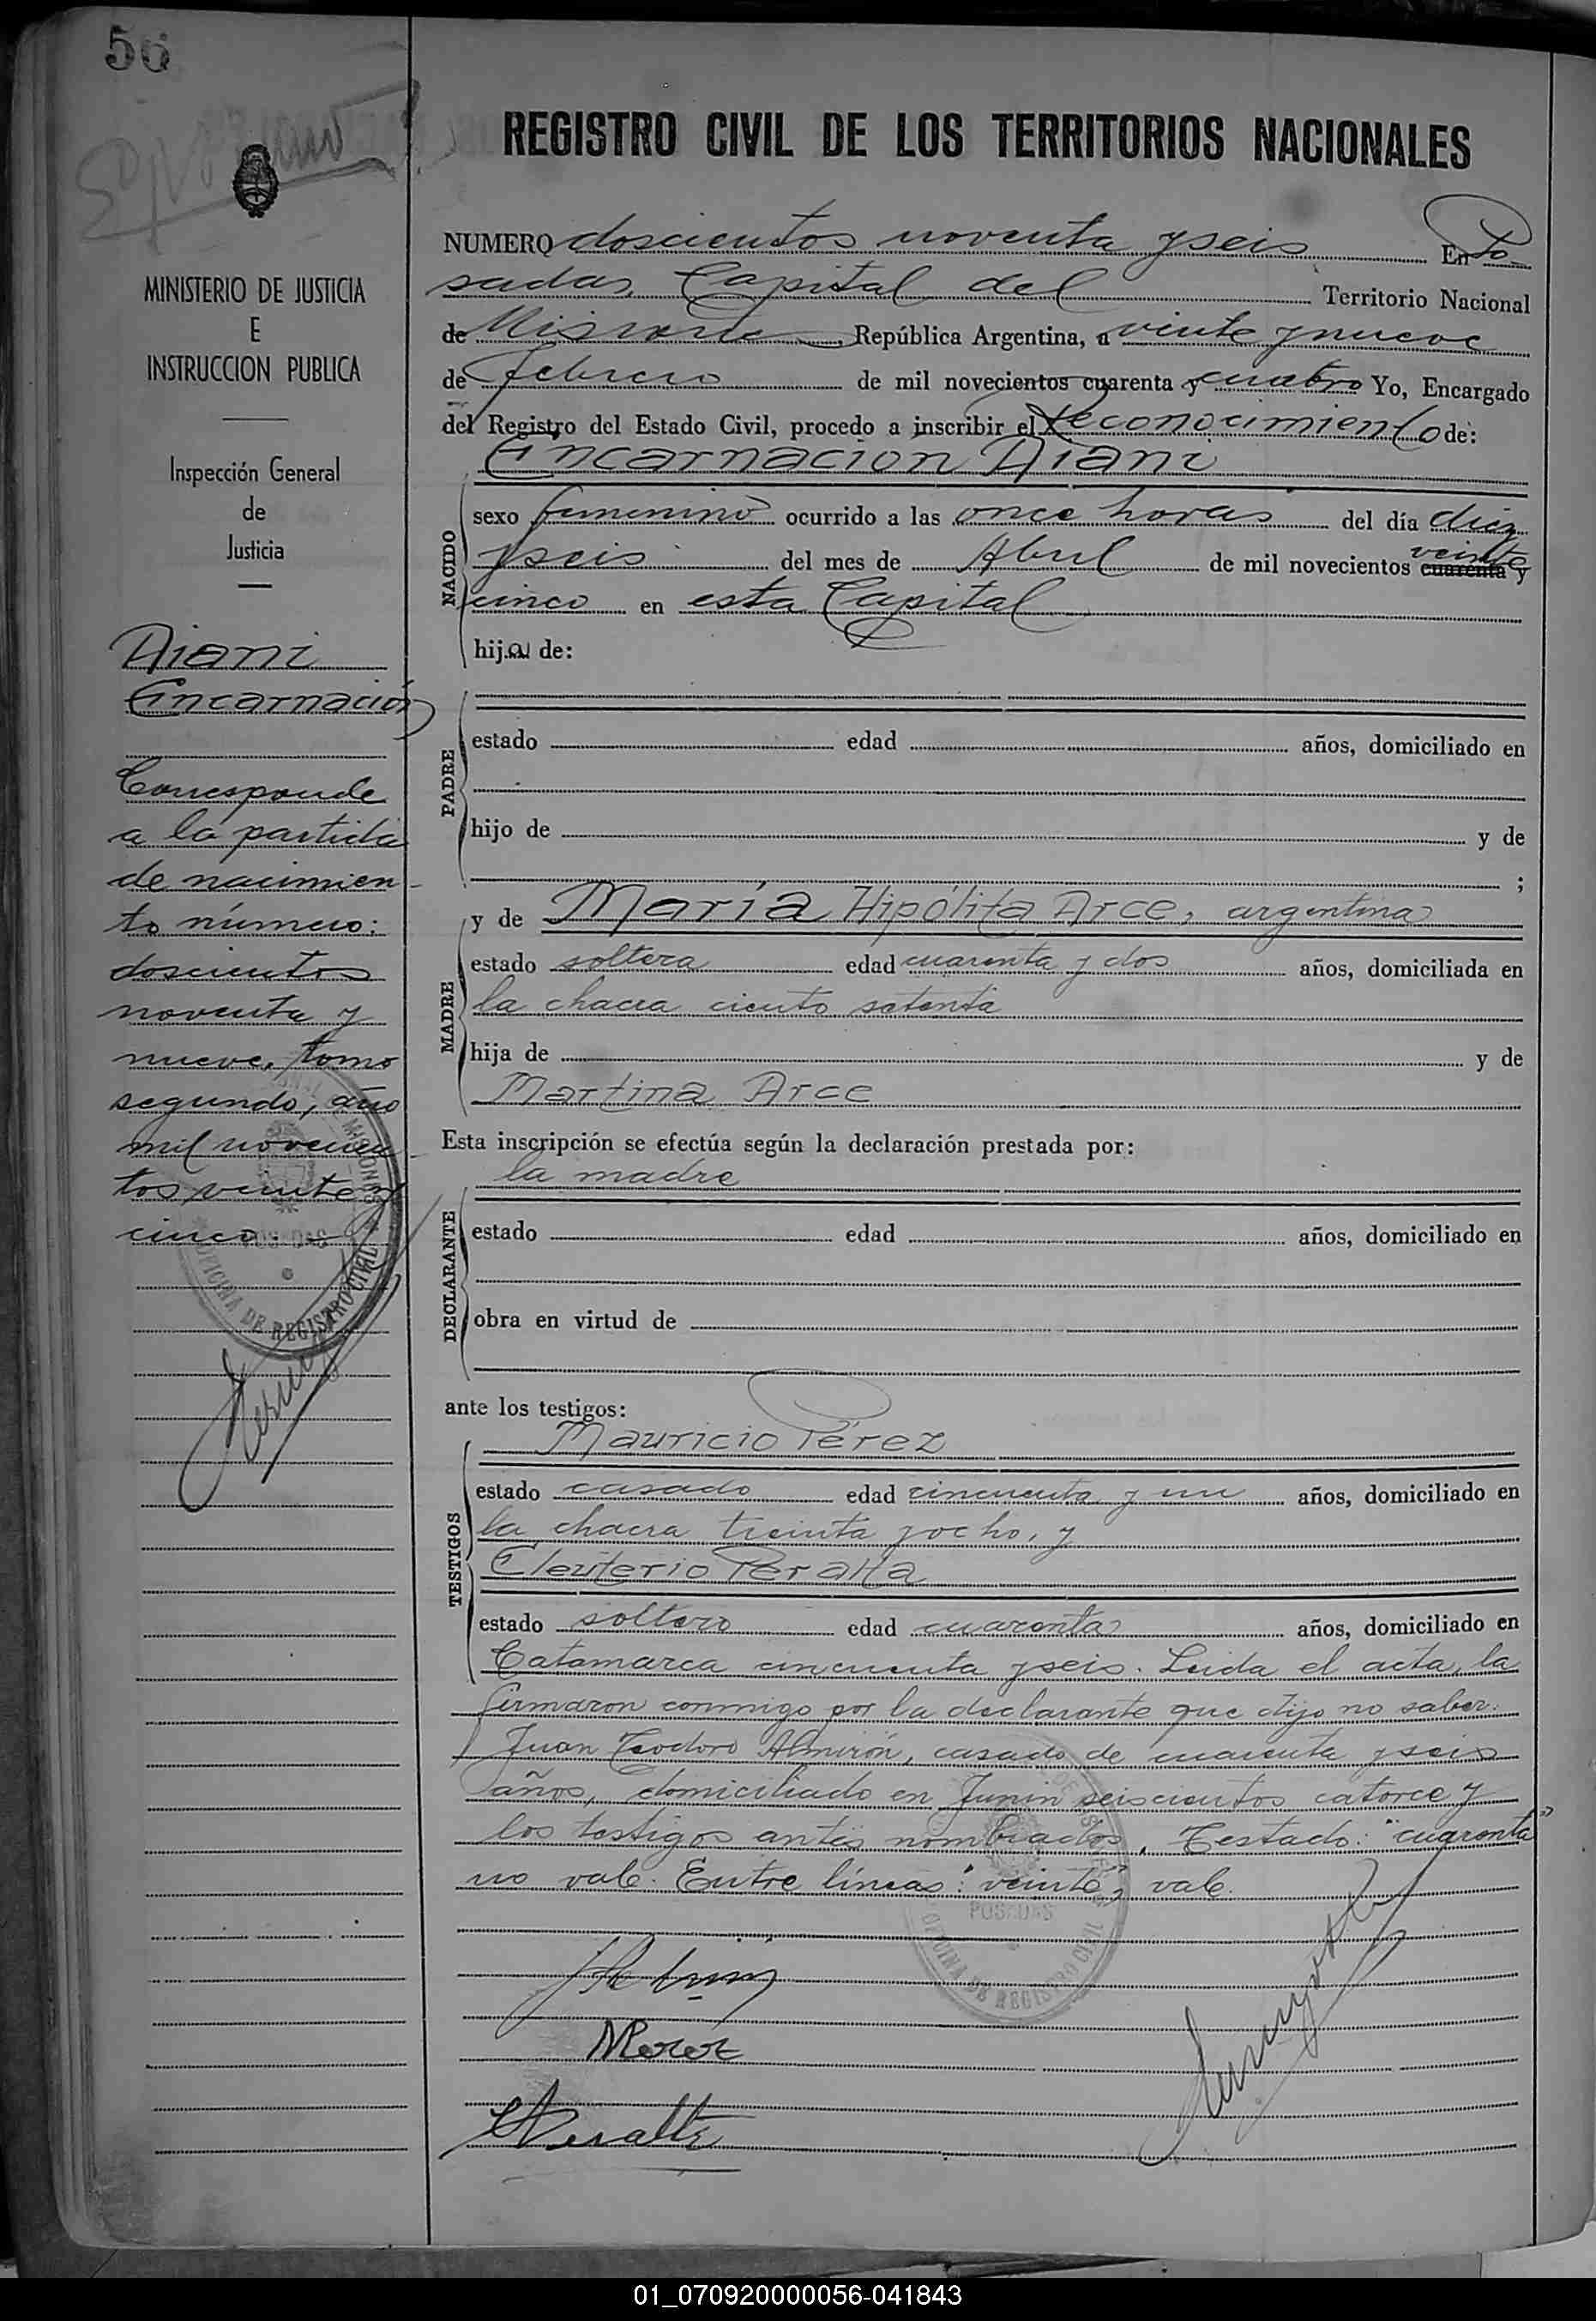 56
REGISTRO CIVIL DE LOS TERRITORIOS NACIONALES
MINISTERIO DE JUSTICIA
E
INSTRUCCION PUBLICA
Inspección General
de
Justicia
Diani
Encarnación
Corresponde
a la partida
de nacimien-
to número:
doscientos
noventa y
nueve, tomo
segundo, año
mil novecien-
tos veinte y
cinco.
OFICINA DE REGISTRO CIVIL
POSADAS
MISIONES
NUMERO doscientos noventa y seis En Po-
sadas, Capital del Territorio Nacional
de Misiones República Argentina, a veinte y nueve
de febrero de mil novecientos cuarenta y cuatro Yo, Encargado
del Registro del Estado Civil, procedo a inscribir el Reconocimiento de:
Encarnación Diani
NACIDO
sexo femenino ocurrido a las once horas del día diez
y seis del mes de Abril de mil novecientos cuarenta veinte y
cinco en esta Capital
hija de:
PADRE
estado edad años, domiciliado en
hijo de y de
;
MADRE
y de María Hipólita Arce, argentina
estado soltera edad cuarenta y dos años, domiciliada en
la chacra ciento setenta
hija de y de
Martina Arce
Esta inscripción se efectúa según la declaración prestada por:
la madre
DECLARANTE
estado edad años, domiciliado en
obra en virtud de
ante los testigos:
TESTIGOS
Mauricio Pérez
estado casado edad cincuenta y un años, domiciliado en
la chacra treinta y ocho, y
Eleuterio Peralta
estado soltero edad cuarenta años, domiciliado en
Catamarca cincuenta y seis. Leida el acta, la
firmaron conmigo por la declarante que dijo no saber:
Juan Teodoro Almirón, casado de cuarenta y seis
años, domiciliado en Junin seiscientos catorce y
los testigos antes nombrados. Testado: "cuarenta"
no vale. Entre líneas: "veinte", vale.
POSADAS
OFICINA DE REGISTRO CIVIL
MPerez
EPeralta
01_070920000056-041843